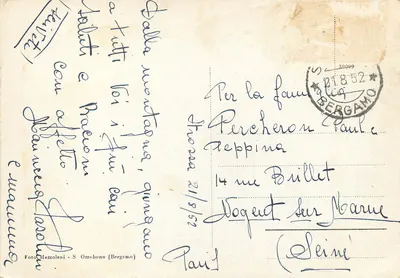 Scrivete
Dalla montagna, giungano
a tutti Voi i più cari
saluti e Bacioni
con affetto
e mamma
Foto Mazzoleni - S. Omobono (Bergamo)
21.8.52
BERGAMO
Per la famiglia
Percheron Paul e
Peppina
14 rue Brillet
Nogent sur Marne
(Seine)
Paris
21/8/52